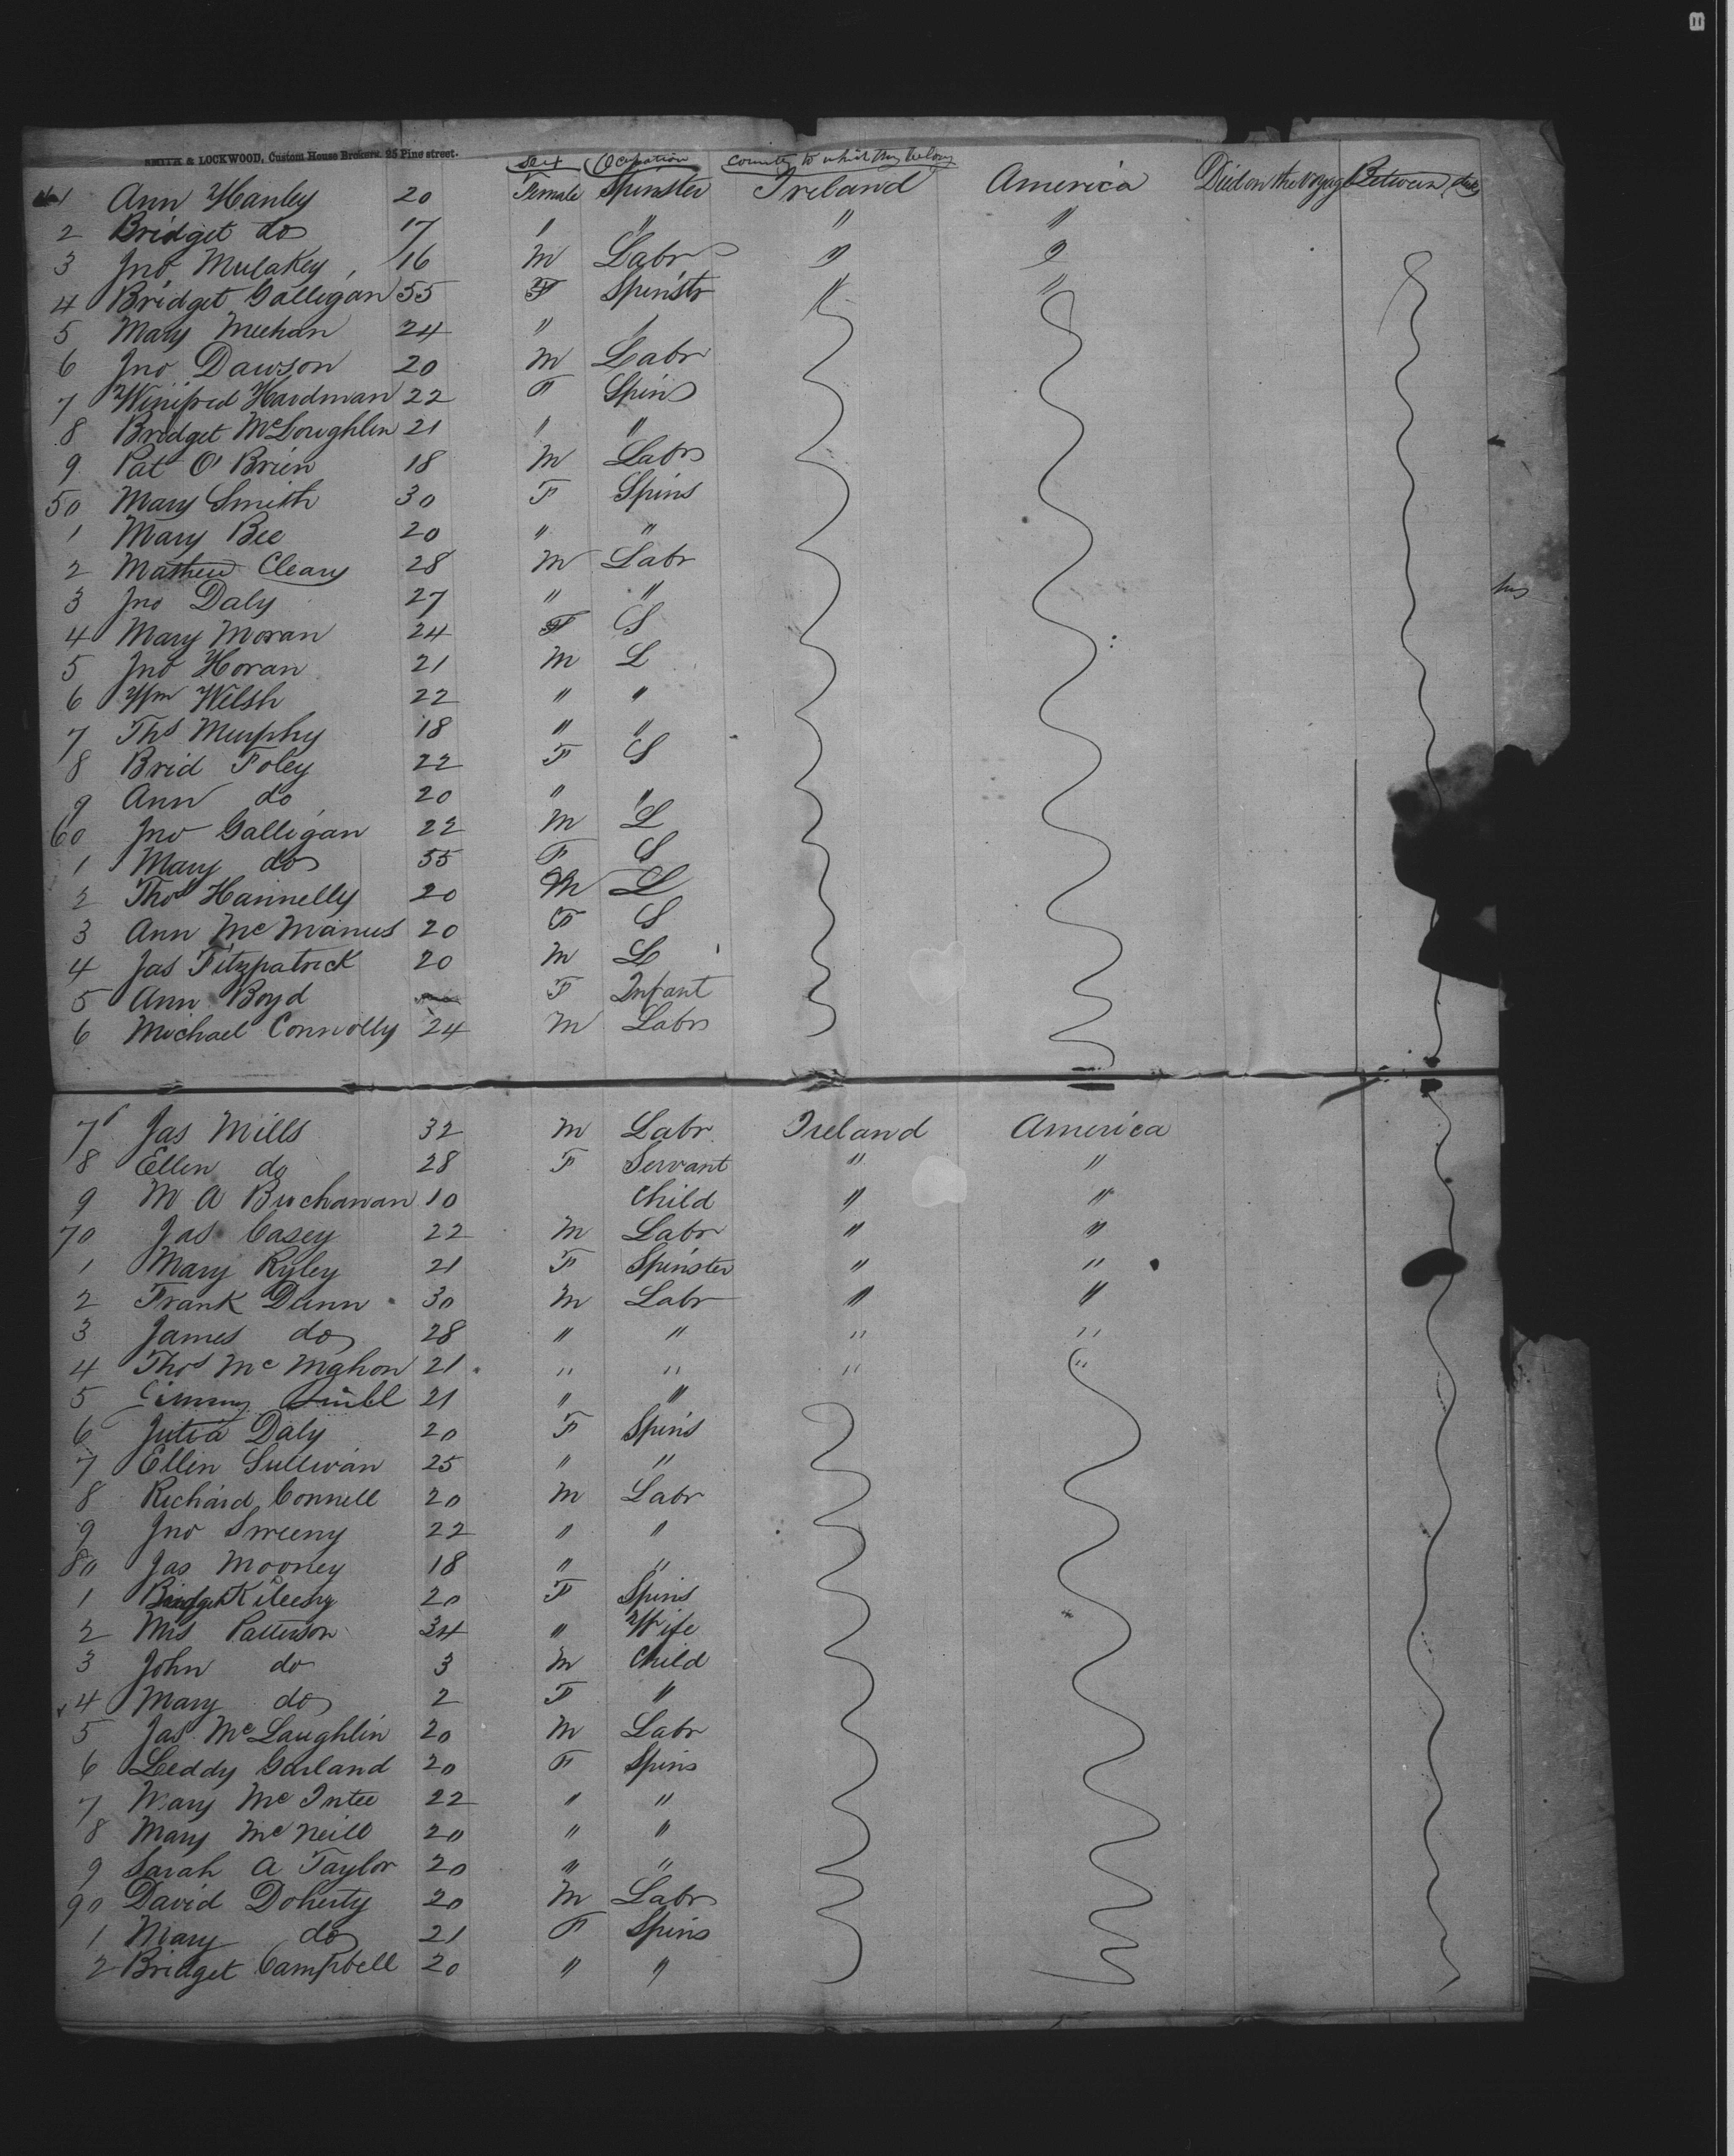 SMITH & LOCKWOOD, Custom House Brokers, 25 Pine street.
Sex Ocupation Country to which they belong
41 Ann Hanley 20 Female Spinster Ireland America Died on the voyage Between decks
2 Bridget do 17 " " " "
3 Jno Mulakey 16 M Labr " "
4 Bridget Galligan 55 F Spinstr " "
5 Mary Meehan 24 " "
6 Jno Dawson 20 M Labr
7 Winifred Hardman 22 F Spins
8 Bridget McLoughlin 21 " "
9 Pat O'Brien 18 M Labr
50 Mary Smith 30 F Spins
1 Mary Bee 20 " "
2 Mathew Cleary 28 M Labr
3 Jno Daly 27 " "
4 Mary Moran 24 F S
5 Jno Horan 21 M L
6 Wm Welsh 22 " "
7 Ths Murphy 18 " "
8 Brid Foley 22 F S
9 Ann do 20 " "
60 Jno Galligan 22 M L
1 Mary do 55 F S
2 Thos Hannelly 20 M L
3 Ann McManus 20 F S
4 Jas Fitzpatrick 20 M L
5 Ann Boyd F Infant
6 Michael Connolly 24 M Labr
7 Jas Mills 32 M Labr Ireland America
8 Ellen do 28 F Servant " "
9 M A Buchanan 10 Child " "
70 Jas Casey 22 M Labr " "
1 Mary Ryley 21 F Spinster " "
2 Frank Dunn 30 M Labr " "
3 James do 28 " " " "
4 Thos McMahon 21 " " " "
5 21 " "
6 Julia Daly 20 F Spins
7 Ellen Sullivan 25 " "
8 Richard Connell 20 M Labr
9 Jno Sweeny 22 " "
80 Jas Mooney 18 " "
1 Bridget 20 F Spins
2 Mrs Patterson 34 " Wife
3 John do 3 M Child
4 Mary do 2 F "
5 Jas McLaughlin 20 M Labr
6 Leddy Garland 20 F Spins
7 Mary McIntee 22 " "
8 Mary McNeill 20 " "
9 Sarah A Taylor 20 " "
90 David Doherty 20 M Labr
1 Mary do 21 F Spins
2 Bridget Campbell 20 " "